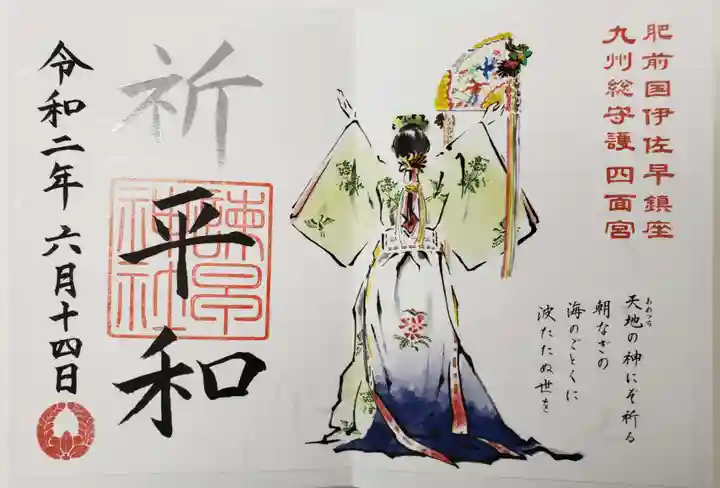 肥前国伊佐早鎮座
九州総守護 四面宮
天地の神にぞ祈る
あめつち
朝なぎの
海のごとくに
波たたぬ世を
祈
平和
諫早
神社
令和二年 六月十四日